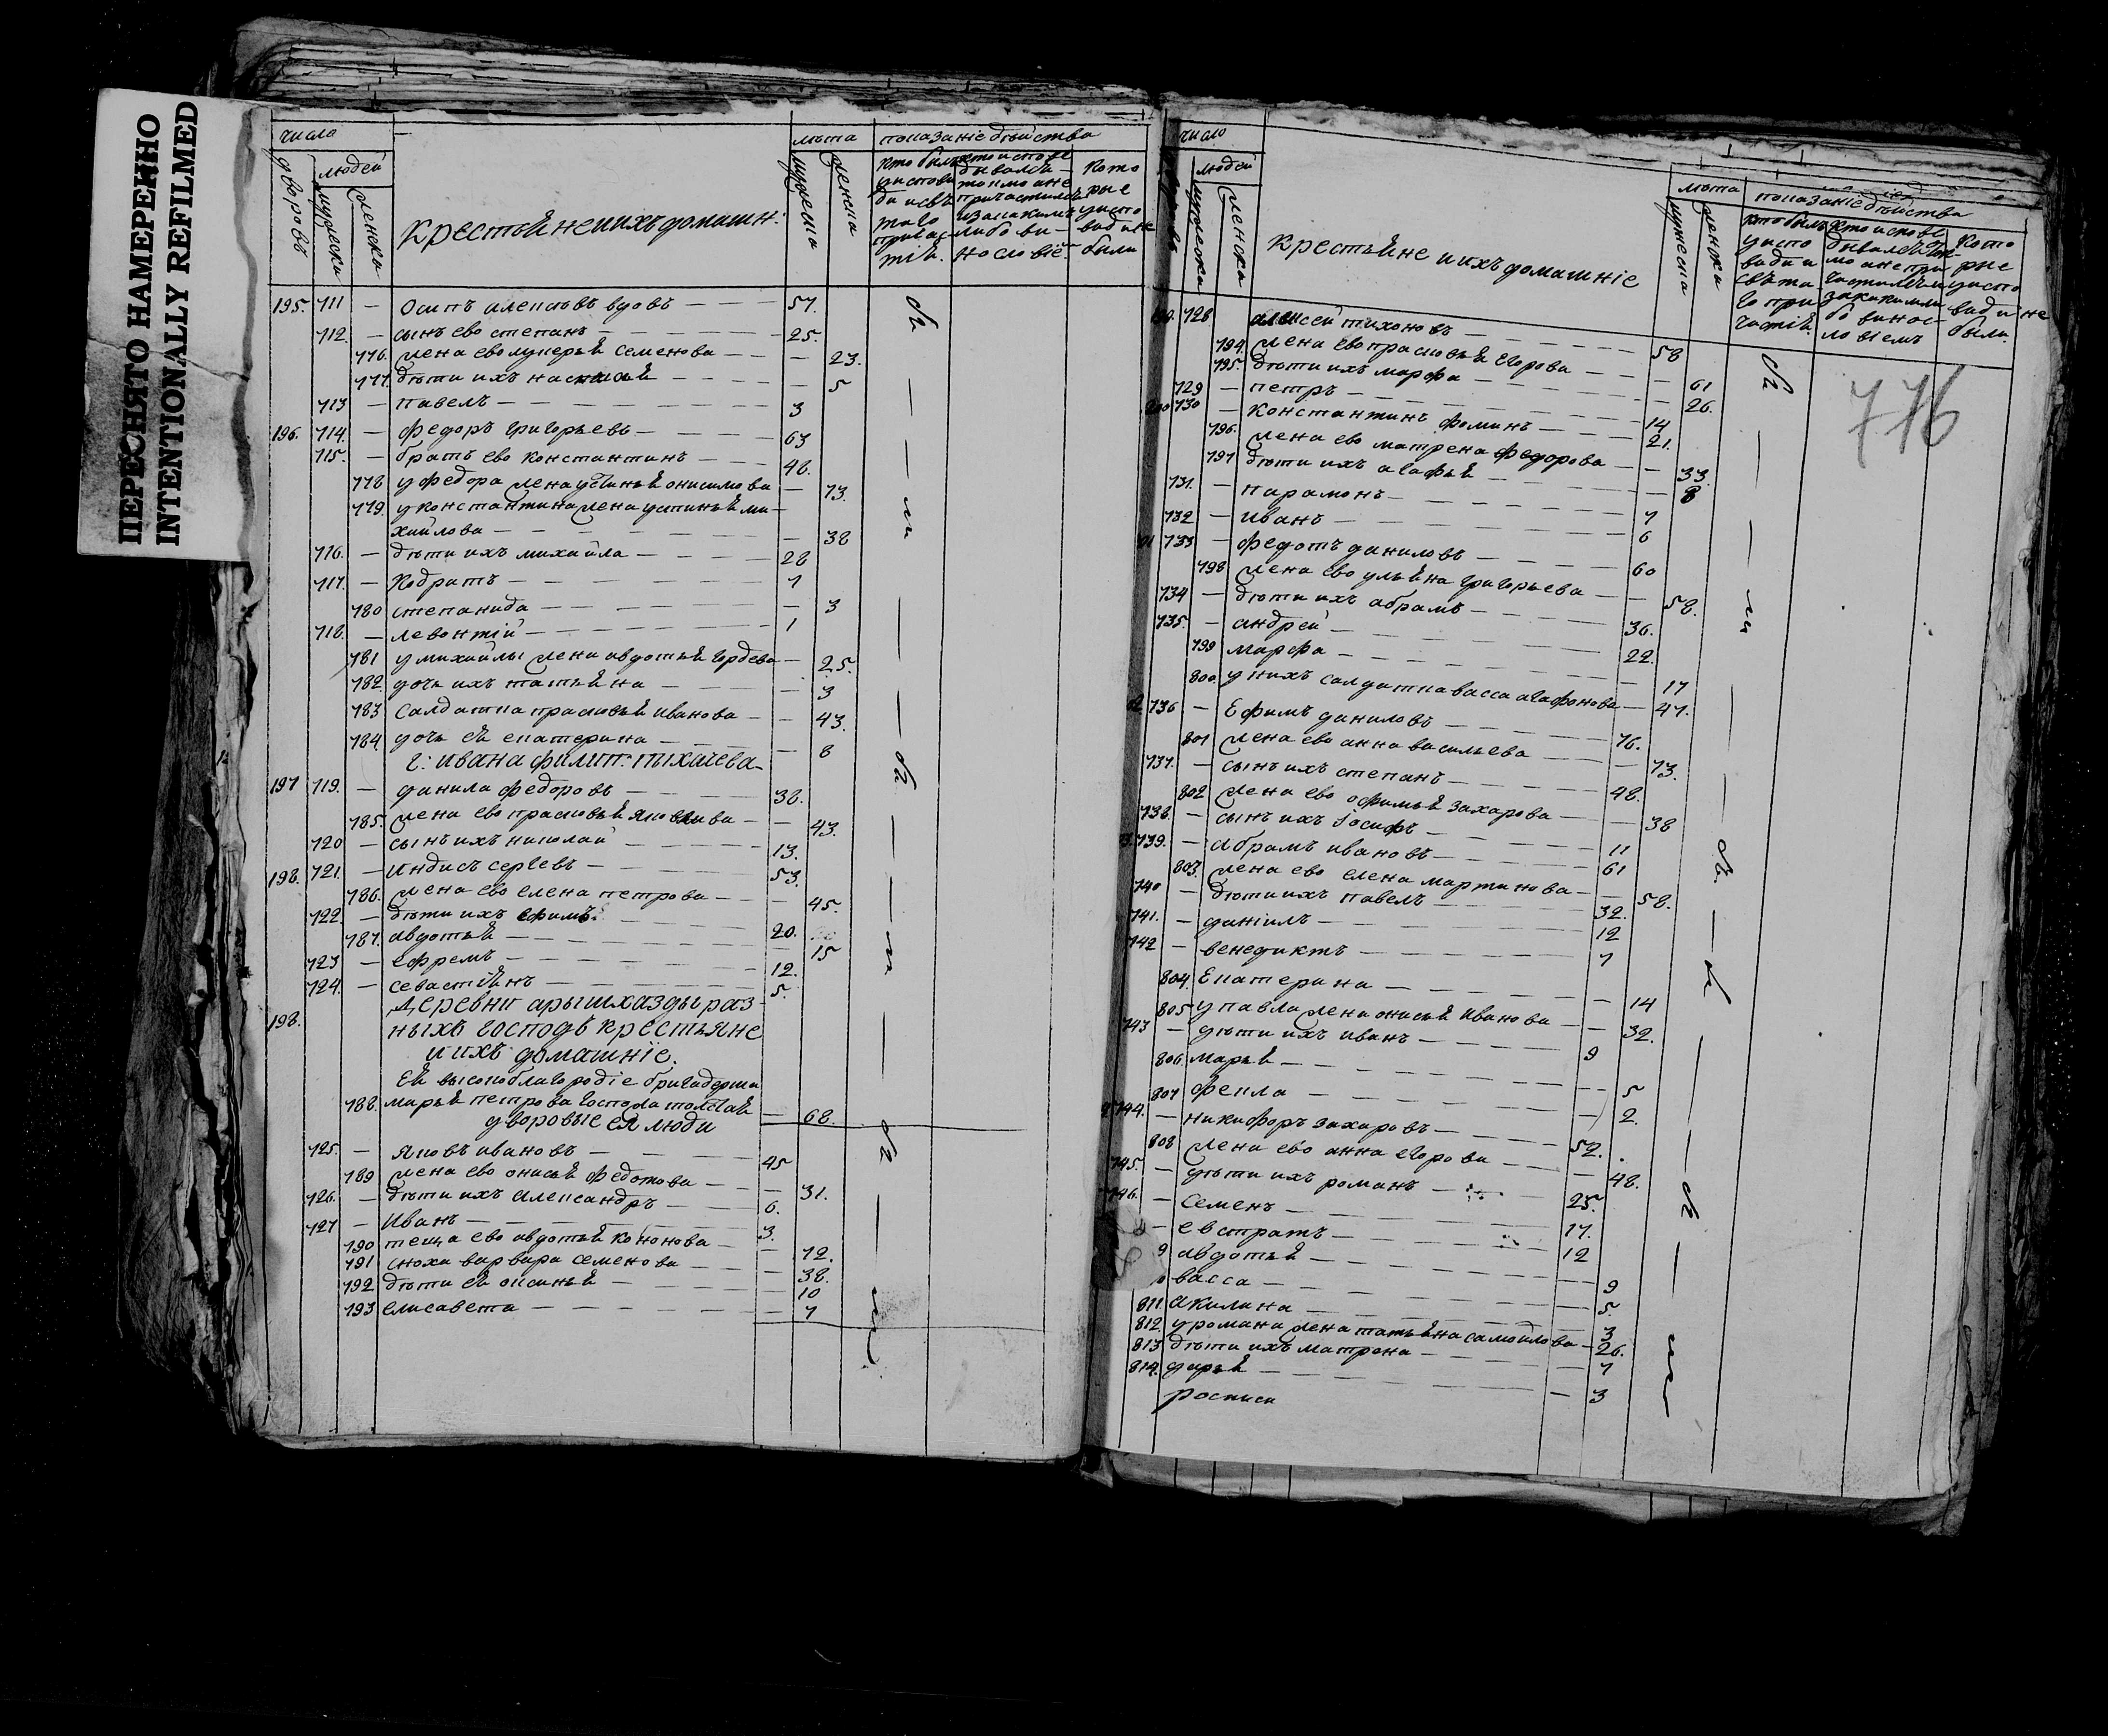 ПЕРЕСНЯТО НАМЕРЕННО
INTENTIONALLY REFILMED
число
дворовъ
людей
мужеска
женска
Крестьяне и ихъ домашн:
лѣта
мужеска
женска
показаніе дѣйства
195. 711 — Осипъ алексѣевъ вдовъ — 57.
712. — сынъ ево степанъ — 25.
776. жена ево лукерья Семенова — 23.
777. дѣти ихъ настасья — 5
713 — павелъ — 3
196. 714. — федоръ григорьевъ — 63
715. — братъ ево константинъ — 48.
778 у федора жена устинья онисимова — 73.
779. у константина жена устинья ми-
хайлова — 38
716. — дѣти ихъ михайла — 28
717. — Кодратъ — 7
780 степанида — 3
718. — левонтій — 1
781 у михайлы жена авдотья гордева — 25.
782. дочь ихъ татьяна — 3
783 Салдатка прасковья иванова — 43.
784 дочь ея екатерина — 8
г: ивана филип: лихачева
197 719. — данила федоровъ — 38.
785. жена ево прасковья яковлева — 43.
720 — сынъ ихъ николай — 13.
198. 721. — Индисъ сергѣевъ — 53.
786. жена ево елена петрова — 45.
722. — дѣти ихъ ефимъ — 20.
787. авдотья — 15
723 — ефремъ — 12.
724. — севастьянъ — 5.
198. Деревни арышхазды раз
ныхъ господъ крестьяне
и ихъ домашніе.
Ея высокоблагородіе бригадерша
788. марья петрова госпожа толстая — 68.
дворовые ея люди
725. — яковъ ивановъ — 45
789 жена ево онисья федотова — 31.
726. — дѣти ихъ александръ — 6.
727 — Иванъ — 3.
790 теща ево авдотья кононова — 72.
791 сноха варвара семенова — 38.
792 дѣти ея оксинья — 10
793 елисавета — 7
число
людей
мужеска
женска
Крестьяне и ихъ домашніе
лѣта
мужеска
женска
показаніе дѣйства
776
728 алексей тихоновъ — 58
794. жена ево прасковья егорова — 61
795. дѣти ихъ марфа — 26.
729 — петръ — 14
200 730 — константинъ фоминъ — 21.
796. жена ево матрена федорова — 33.
797 дѣти ихъ агафья — 8
731. — парамонъ — 7
732 — иванъ — 6
733 — федотъ даниловъ — 60
798 жена ево ульяна григорьева — 58.
734 — дѣти ихъ абрамъ — 36.
735. — андрей — 22.
799 марфа — 17
800. у нихъ салдатка васса агафонова — 47.
736 — Ефимъ даниловъ — 76.
801 жена ево анна васильева — 73.
737. — сынъ ихъ степанъ — 48.
802 жена ево офимья захарова — 38
738. — сынъ ихъ іосифъ — 11
739. — абрамъ ивановъ — 61
803. жена ево елена мартинова — 58.
740 — дѣти ихъ павелъ — 32.
741. — даніилъ — 12
742 — венедиктъ — 7
804. Екатерина — 14
805 у павла жена онисья иванова — 32.
743 — дѣти ихъ иванъ — 9
806. марья — 5
807 фекла — 2.
744. — никифоръ захаровъ — 52.
808 жена ево анна егорова — 48.
745. — дѣти ихъ романъ — 25.
746. — Семенъ — 17.
— евстратъ — 12
9 авдотья — 9
васса — 5
811. акилина — 3
812 у романа жена татьяна самойлова — 26.
813 дѣти ихъ матрена — 7
814. дарья — 3
росписи